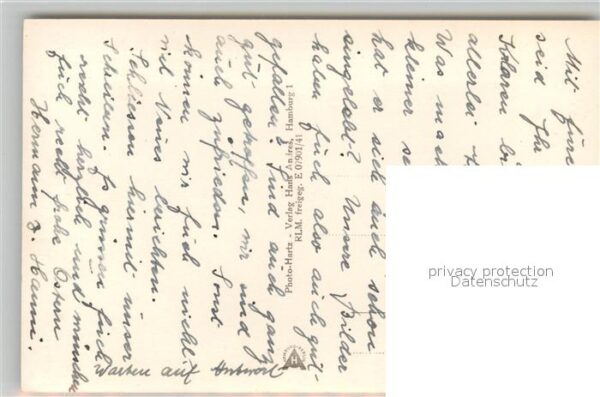 Mit
seid Ihr
allerlei
Was
kleiner
hat er sich auch schon
eingelebt? Unsere Bilder
haben Euch also auch gut
gefallen & sind auch ganz
gut getroffen, wir sind
auch zufrieden. Sonst
können wir Euch nicht
viel Neues berichten.
Schliessen hiermit unser
Schreiben. Es grüssen Euch
recht herzlich und wünschen
Euch recht frohe Ostern
Hermann & Hanni.
Warten auf Antwort
Photo-Hartz - Verlag Hans Andres, Hamburg 1
RLM. freigeg. E 07901/41
privacy protection
Datenschutz